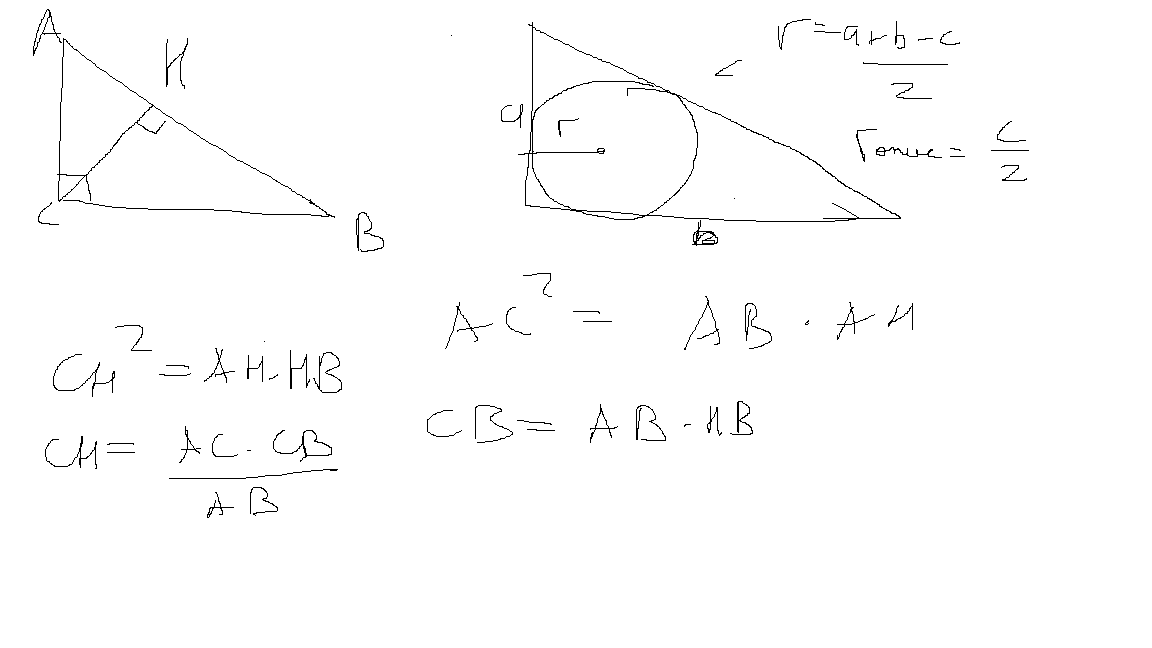 A
H
C
B
a
r
b
c
r = a+b-c / 2
rопис = c / 2
CH² = AH·HB
CH = AC·CB / AB
AC² = AB·AH
CB = AB·HB